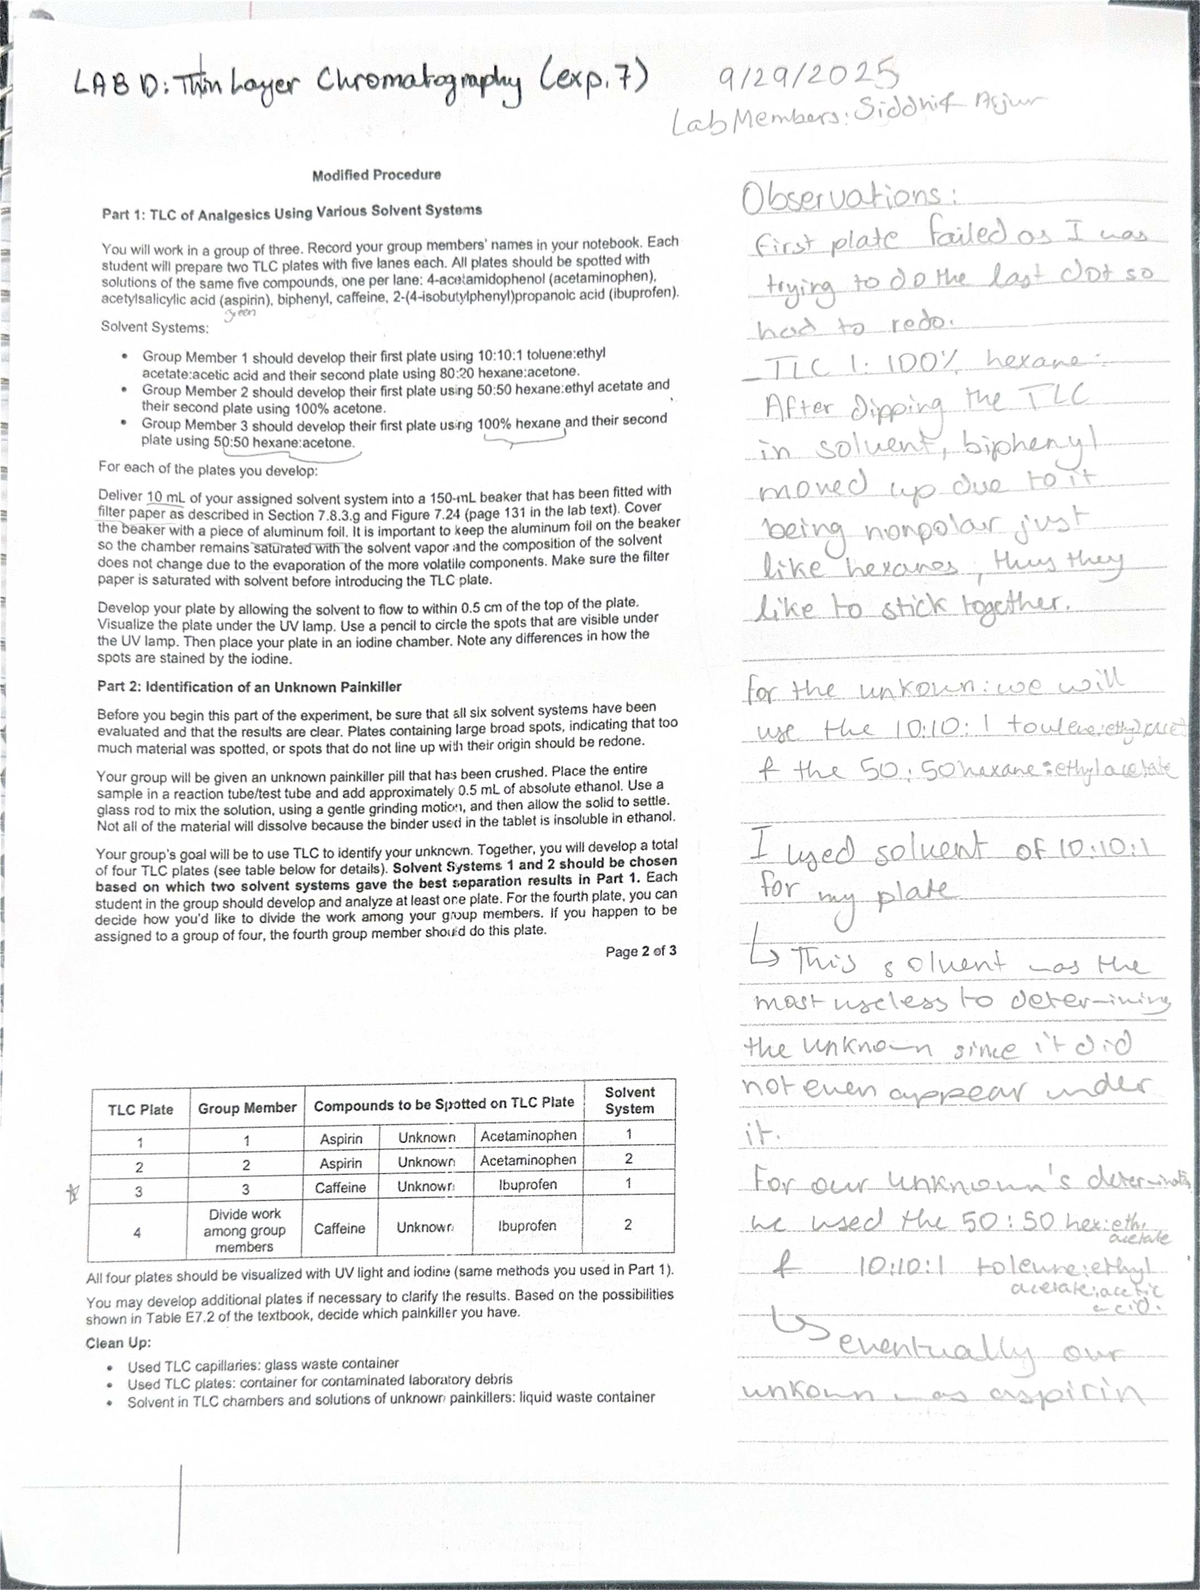 LAB D: Thin Layer Chromatography (exp. 7)
9/29/2025
Lab Members: Siddhi & Arjun
Modified Procedure
Part 1: TLC of Analgesics Using Various Solvent Systems
You will work in a group of three. Record your group members' names in your notebook. Each
student will prepare two TLC plates with five lanes each. All plates should be spotted with
solutions of the same five compounds, one per lane: 4-acetamidophenol (acetaminophen),
acetylsalicylic acid (aspirin), biphenyl, caffeine, 2-(4-isobutylphenyl)propanoic acid (ibuprofen).
green
Solvent Systems:
• Group Member 1 should develop their first plate using 10:10:1 toluene:ethyl
acetate:acetic acid and their second plate using 80:20 hexane:acetone.
• Group Member 2 should develop their first plate using 50:50 hexane:ethyl acetate and
their second plate using 100% acetone.
• Group Member 3 should develop their first plate using 100% hexane and their second
plate using 50:50 hexane:acetone.
For each of the plates you develop:
Deliver 10 mL of your assigned solvent system into a 150-mL beaker that has been fitted with
filter paper as described in Section 7.8.3.g and Figure 7.24 (page 131 in the lab text). Cover
the beaker with a piece of aluminum foil. It is important to keep the aluminum foil on the beaker
so the chamber remains saturated with the solvent vapor and the composition of the solvent
does not change due to the evaporation of the more volatile components. Make sure the filter
paper is saturated with solvent before introducing the TLC plate.
Develop your plate by allowing the solvent to flow to within 0.5 cm of the top of the plate.
Visualize the plate under the UV lamp. Use a pencil to circle the spots that are visible under
the UV lamp. Then place your plate in an iodine chamber. Note any differences in how the
spots are stained by the iodine.
Part 2: Identification of an Unknown Painkiller
Before you begin this part of the experiment, be sure that all six solvent systems have been
evaluated and that the results are clear. Plates containing large broad spots, indicating that too
much material was spotted, or spots that do not line up with their origin should be redone.
Your group will be given an unknown painkiller pill that has been crushed. Place the entire
sample in a reaction tube/test tube and add approximately 0.5 mL of absolute ethanol. Use a
glass rod to mix the solution, using a gentle grinding motion, and then allow the solid to settle.
Not all of the material will dissolve because the binder used in the tablet is insoluble in ethanol.
Your group's goal will be to use TLC to identify your unknown. Together, you will develop a total
of four TLC plates (see table below for details). Solvent Systems 1 and 2 should be chosen
based on which two solvent systems gave the best separation results in Part 1. Each
student in the group should develop and analyze at least one plate. For the fourth plate, you can
decide how you'd like to divide the work among your group members. If you happen to be
assigned to a group of four, the fourth group member should do this plate.
Page 2 of 3
TLC Plate Group Member Compounds to be Spotted on TLC Plate Solvent System
1 1 Aspirin Unknown Acetaminophen 1
2 2 Aspirin Unknown Acetaminophen 2
3 3 Caffeine Unknown Ibuprofen 1
4 Divide work among group members Caffeine Unknown Ibuprofen 2
All four plates should be visualized with UV light and iodine (same methods you used in Part 1).
You may develop additional plates if necessary to clarify the results. Based on the possibilities
shown in Table E7.2 of the textbook, decide which painkiller you have.
Clean Up:
• Used TLC capillaries: glass waste container
• Used TLC plates: container for contaminated laboratory debris
• Solvent in TLC chambers and solutions of unknown painkillers: liquid waste container
Observations:
first plate failed as I was
trying to do the last dot so
had to redo.
- TLC 1: 100% hexane:
After dipping the TLC
in solvent, biphenyl
moved up due to it
being nonpolar just
like hexanes, thus they
like to stick together.
for the unkown: we will
use the 10:10:1 toulene:ethyl acet
& the 50:50 hexane:ethyl acetate
I used solvent of 10:10:1
for my plate
↳ This solvent was the
most useless to determining
the unknown since it did
not even appear under
it.
For our unknown's determinatin
we used the 50:50 hex:eth.
acetate
& 10:10:1 toleune:ethyl
acetate:acetic
acid.
↳ eventually our
unkown was aspirin